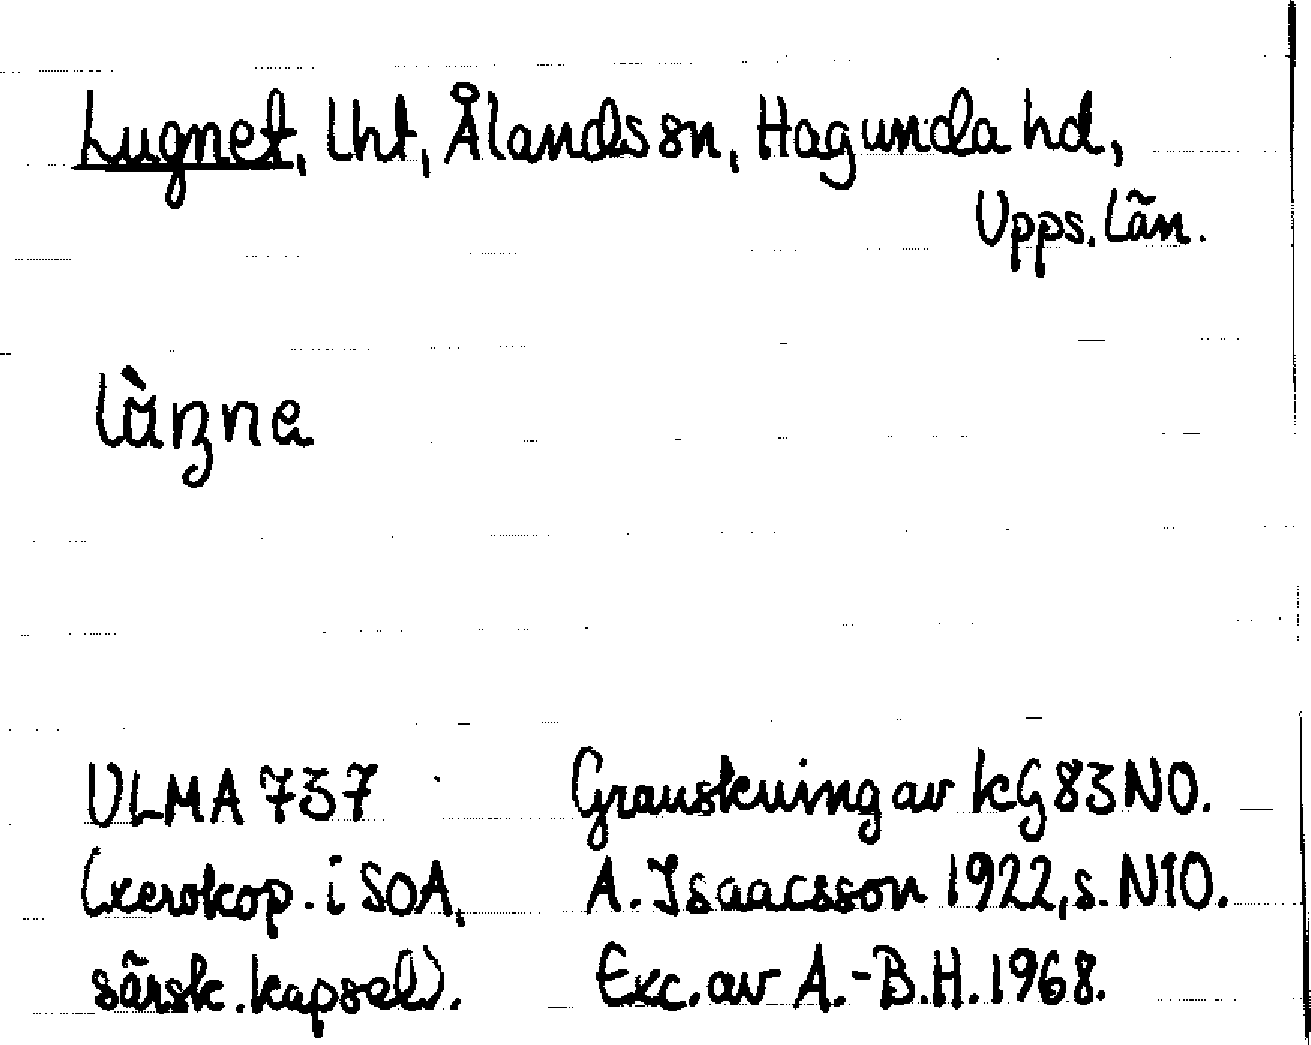 Lugnet, lht, Ålands sn, Hagunda hd,
Upps. län.
ULMA 737
(xerokop. i SOA,
särsk. kapsel).
Granskning av kG 83 NO.
A. Isaacsson 1922, s. N10.
Exc. av A.-B.H. 1968.